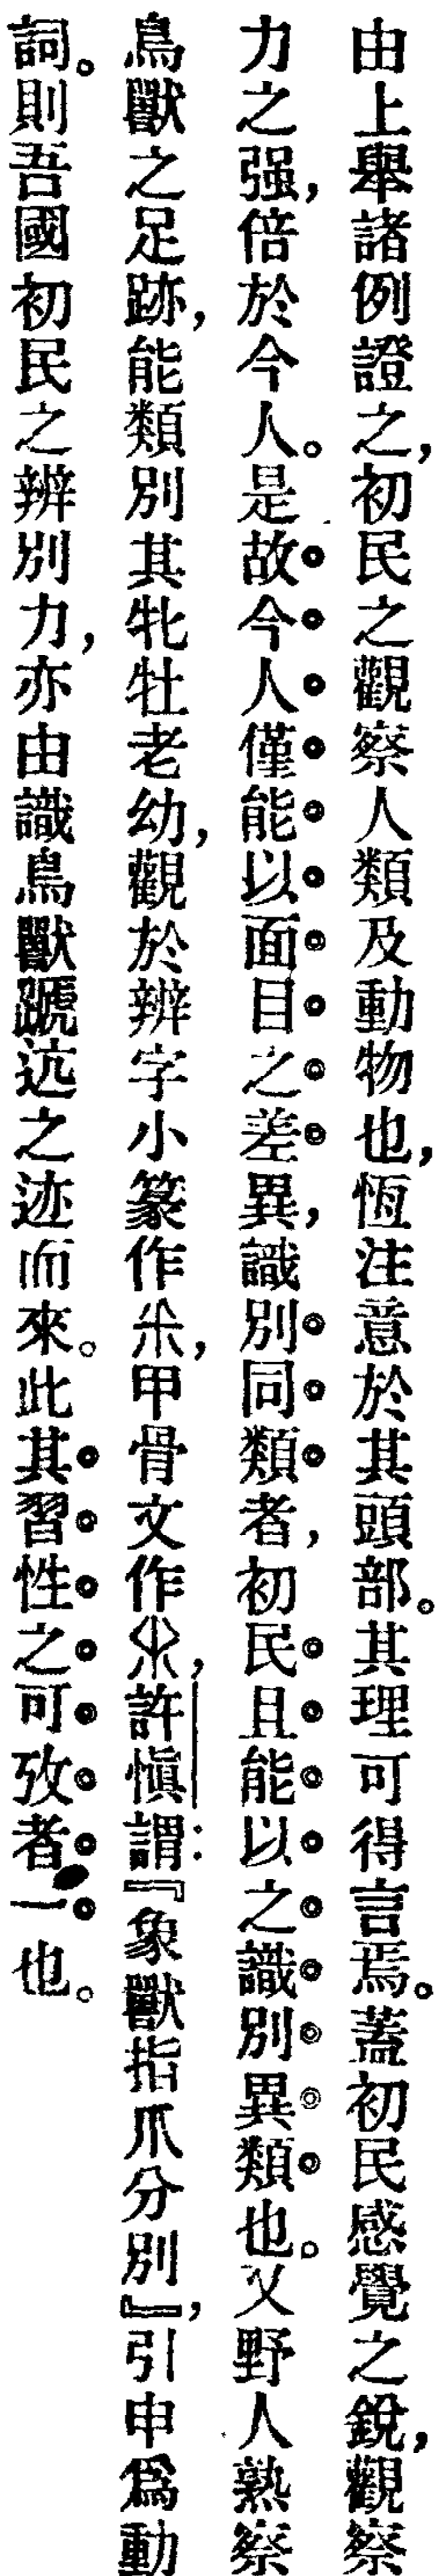 由上舉諸例證之，初民之觀察人類及動物也，恆注意於其頭部。其理可得言焉。蓋初民感覺之銳，觀察
力之强，倍於今人。是故今人僅能以面目之差異，識別同類者，初民且能以之識別異類也。又野人熟察
鳥獸之足跡，能類別其牝牡老幼，觀於辨字小篆作釆，甲骨文作釆，許愼謂：『象獸指爪分別』，引申爲動
詞。則吾國初民之辨別力，亦由識鳥獸蹏迒之迹而來。此其習性之可攷者一也。